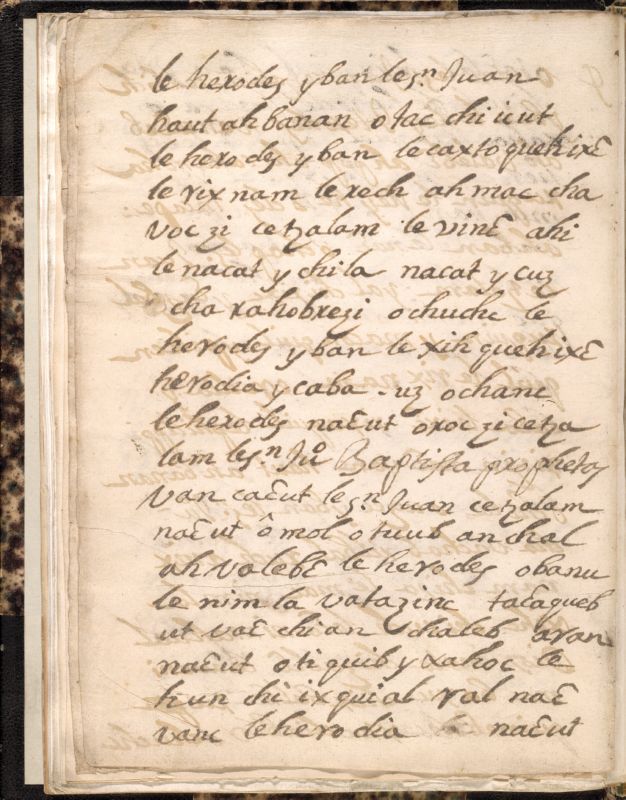 le herodes yban le s.n Juan
haut ahbanan otac chi icut
le herodes yban le caxtoquehixẽ
le rixnam le rech ahmac cha
voc zi cetzalam le vinẽ ahi
le nacat y chila nacat y cuz
cha rahobrezi ochuche le
herodes yban le xihquehixẽ
herodia y caba - uz ochanc
le herodes naẽut oroc zi cetza
lam le s.n Juº Baptista prophetas
van caẽut le s.n Juan cetzalam
naẽut ô mol otuub anchal
ah valebẽ le herodes obanu
le nim la vatazinc taẽaqueb
ut vaẽ chian chaleb aran
naẽut otiquib y xahoc le
hun chi ixquial ral naẽ
vanc le herodia naẽut